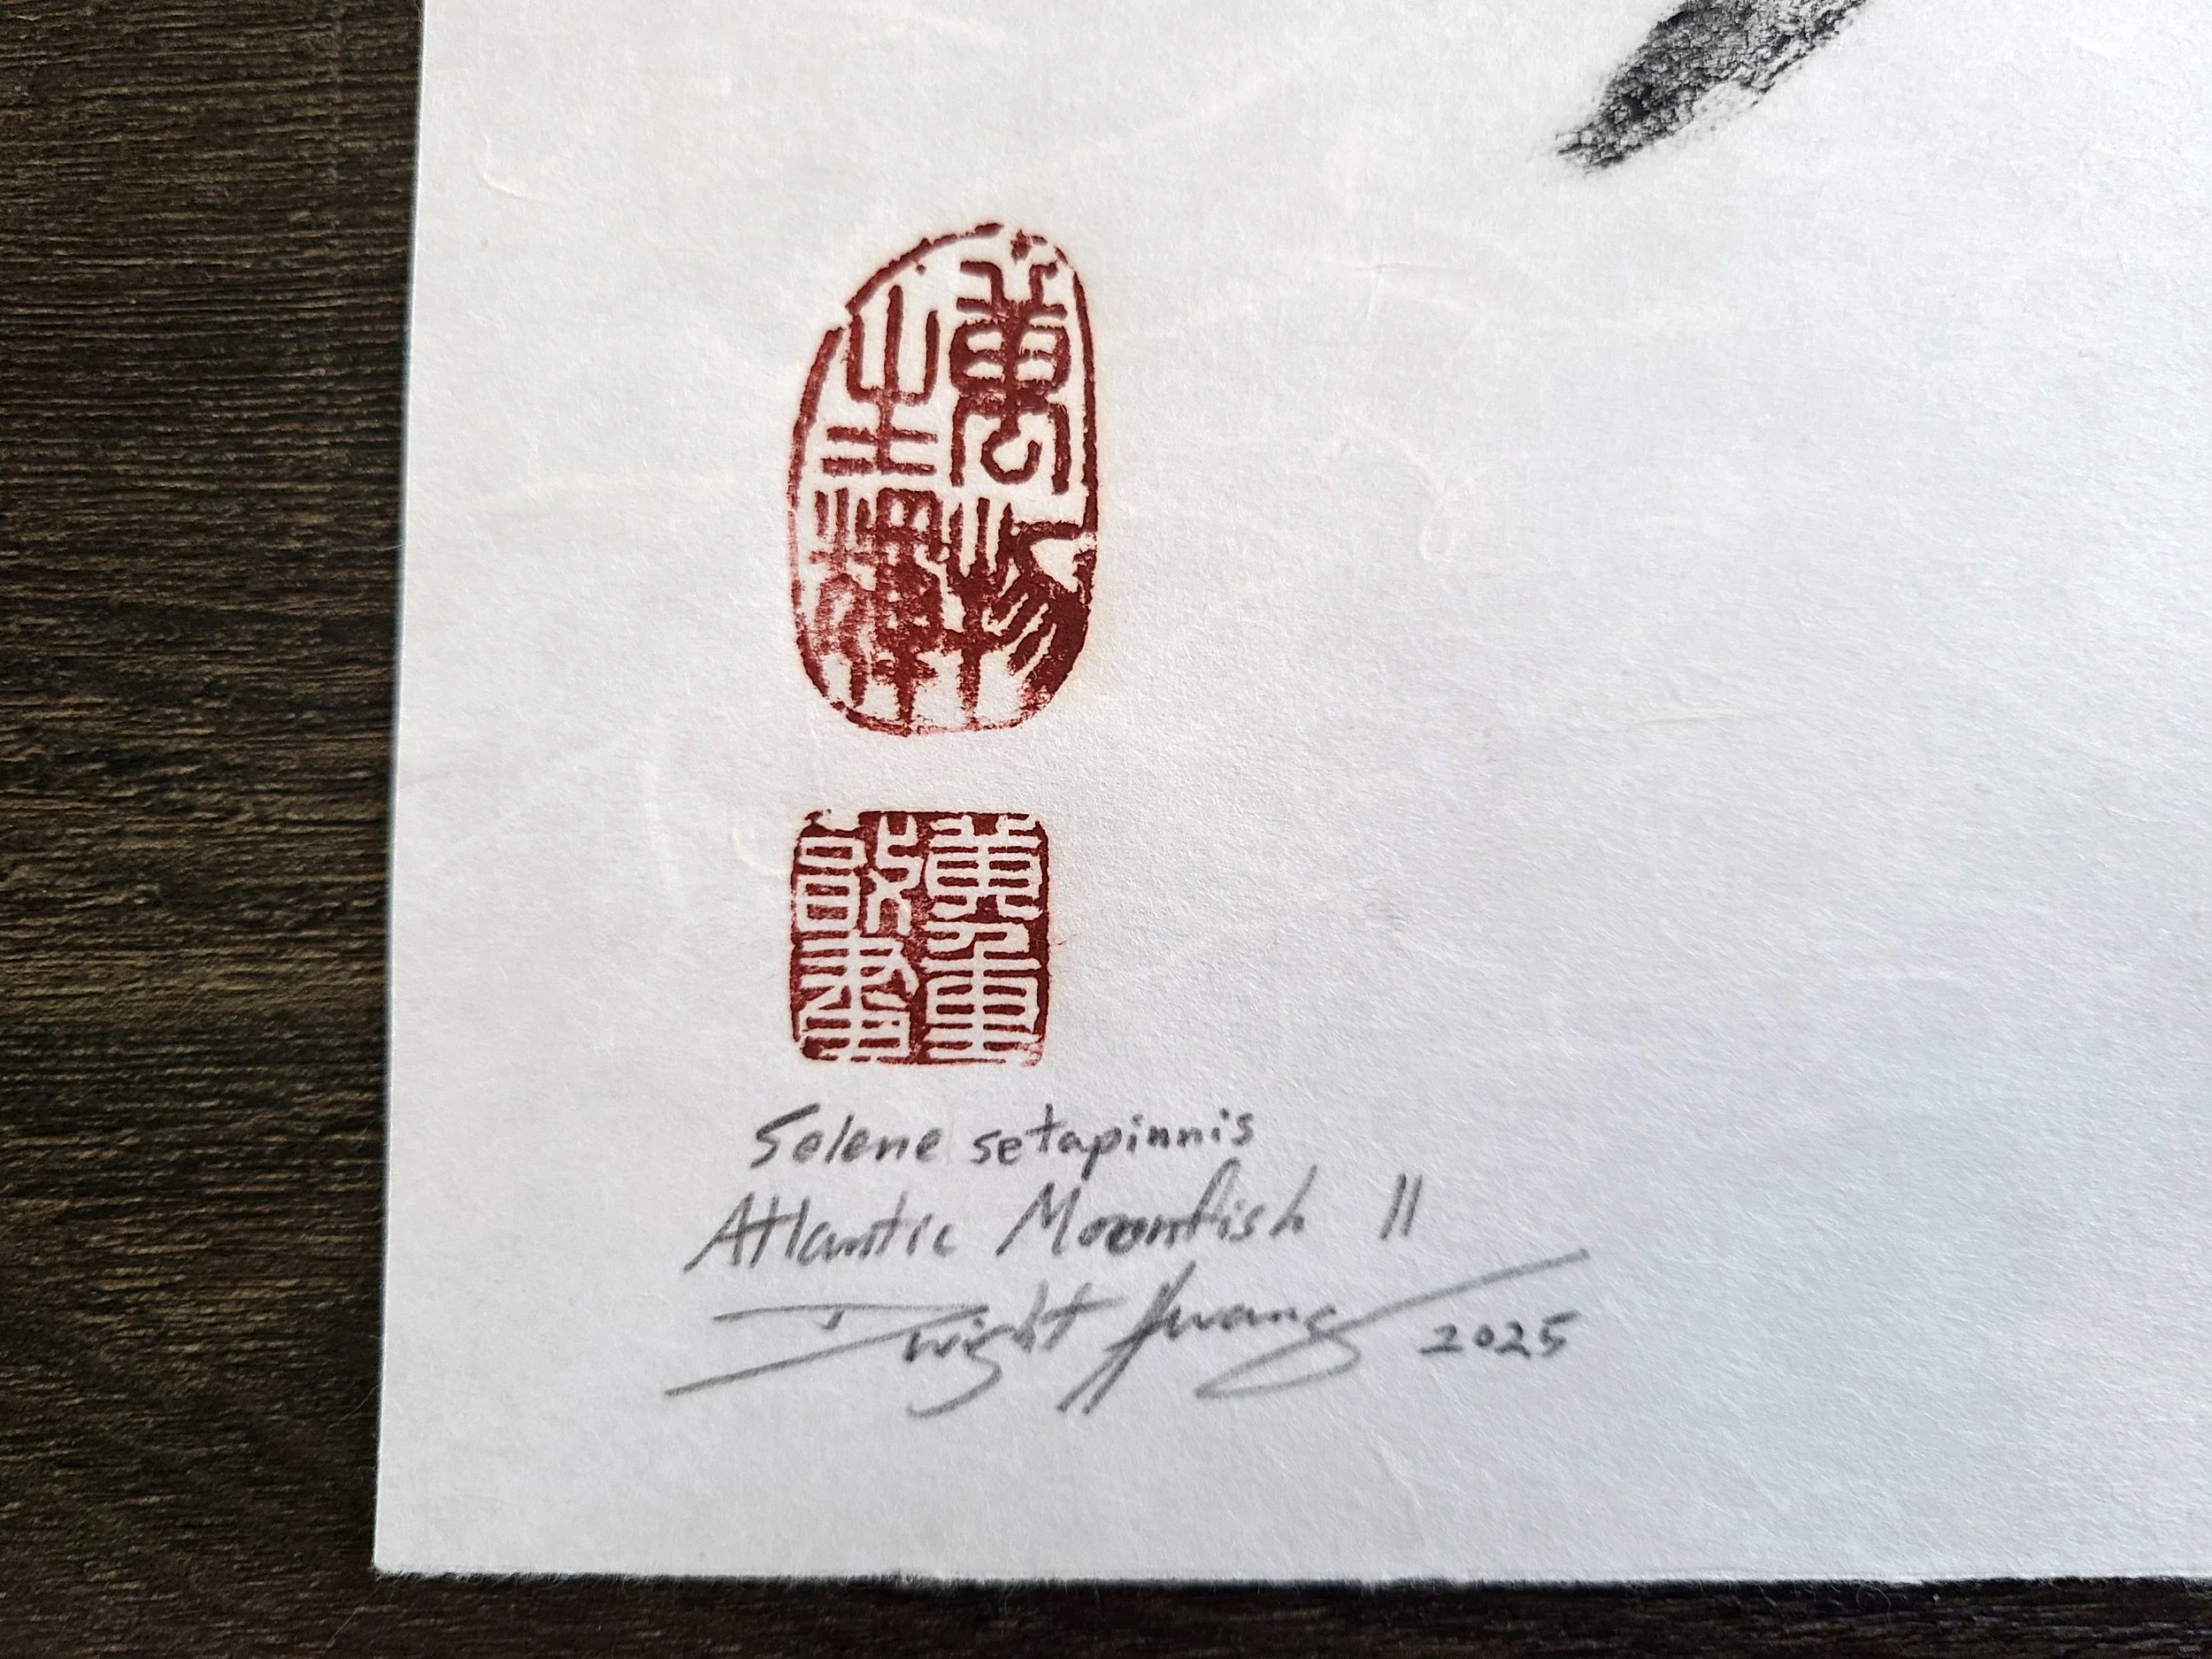 萬物
生輝
Selene setapinnis
Atlantic Moonfish II
Dwight Hwang 2025